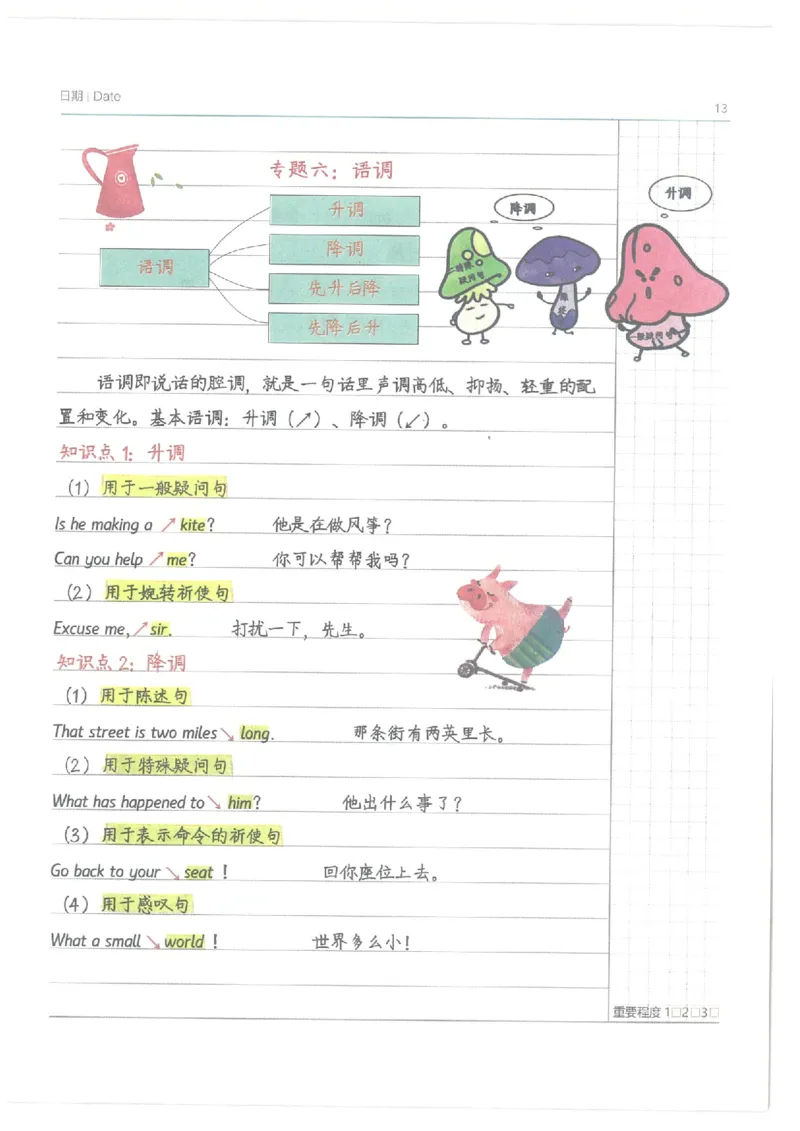 日期 | Date
13
专题六：语调
升调
降调
升调
语调
降调
先升后降
先降后升
特殊疑问句
一般疑问句
语调即说话的腔调，就是一句话里声调高低、抑扬、轻重的配
置和变化。基本语调：升调（↗）、降调（↙）。
知识点 1：升调
（1）用于一般疑问句
Is he making a ↗ kite? 他是在做风筝？
Can you help ↗ me? 你可以帮帮我吗？
（2）用于婉转祈使句
Excuse me, ↗ sir. 打扰一下，先生。
知识点 2：降调
（1）用于陈述句
That street is two miles ↘ long. 那条街有两英里长。
（2）用于特殊疑问句
What has happened to ↘ him? 他出什么事了？
（3）用于表示命令的祈使句
Go back to your ↘ seat ! 回你座位上去。
（4）用于感叹句
What a small ↘ world ! 世界多么小！
重要程度 1□2□3□